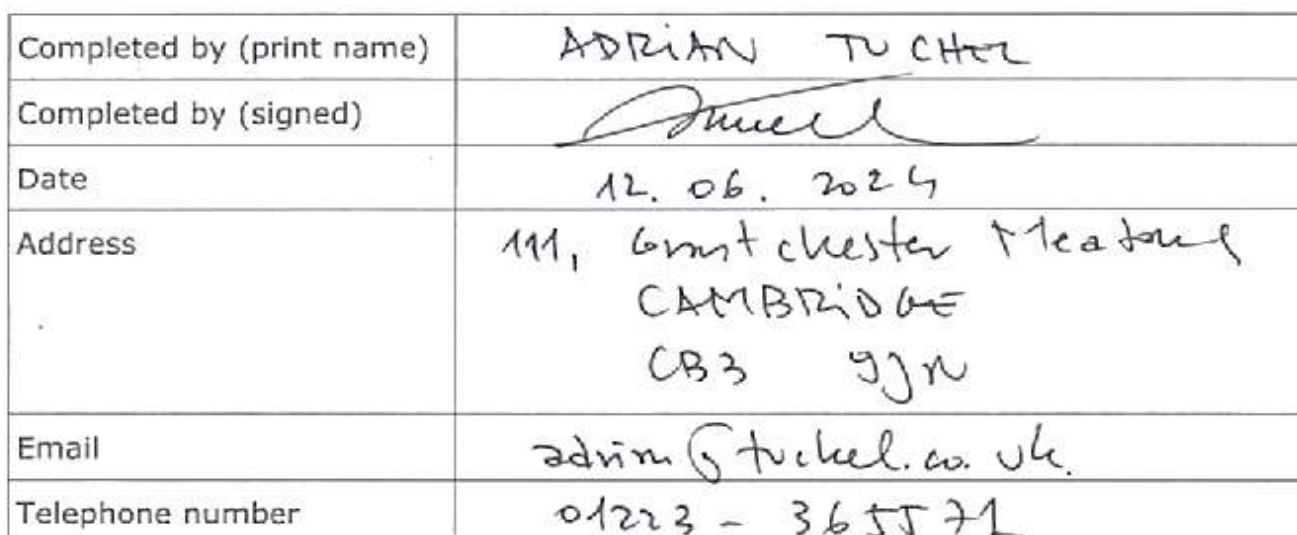 Completed by (print name) ADRIAN TUCHEL
Completed by (signed)
Date 12. 06. 2024
Address 111, Grantchester Meadows
CAMBRIDGE
CB3 9JN
Email adrian@tuchel.co.uk.
Telephone number 01223 - 365571